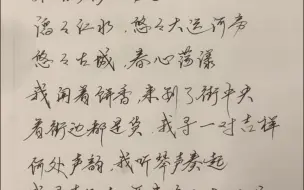 漏々江水，悠々大运河旁
悠々古城，春心荡漾
我闻着饼香，来到了街中央
看街边都是货，我寻一对吉祥
何处声韵，我听琴声奏起